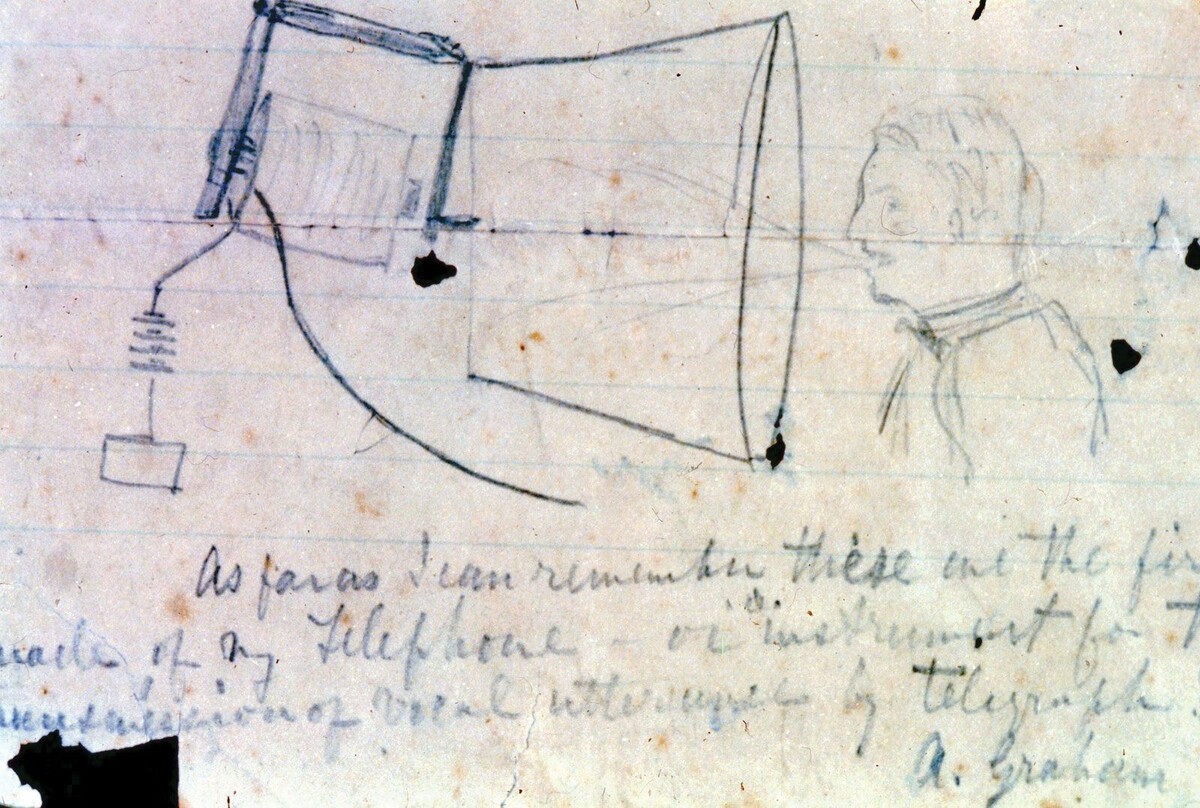 As far as I can remember these are the fir
made of my Telephone - or "instrument for T
ansmission of vocal utterance by telegraph.
A. Graham